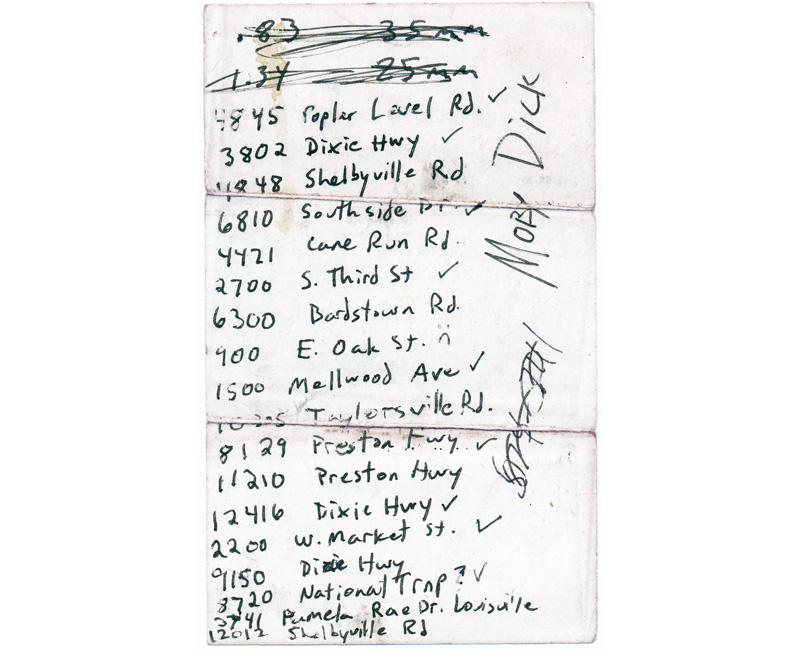 .83 35mm
1.34 25mm
4845 Popler Level Rd. ✓
3802 Dixie Hwy ✓
4848 Shelbyville Rd
6810 Southside Dr. ✓
4421 Cane Run Rd.
2700 S. Third St ✓
6300 Bardstown Rd.
900 E. Oak St.
1500 Mellwood Ave ✓
Taylorsville Rd.
8129 Preston Hwy ✓
11210 Preston Hwy
12416 Dixie Hwy ✓
2200 W. Market St. ✓
9150 Dixie Hwy
8720 National Trnp ? ✓
3741 Pamela Rae Dr. Louisville
12012 Shelbyville Rd
MOBY DICK